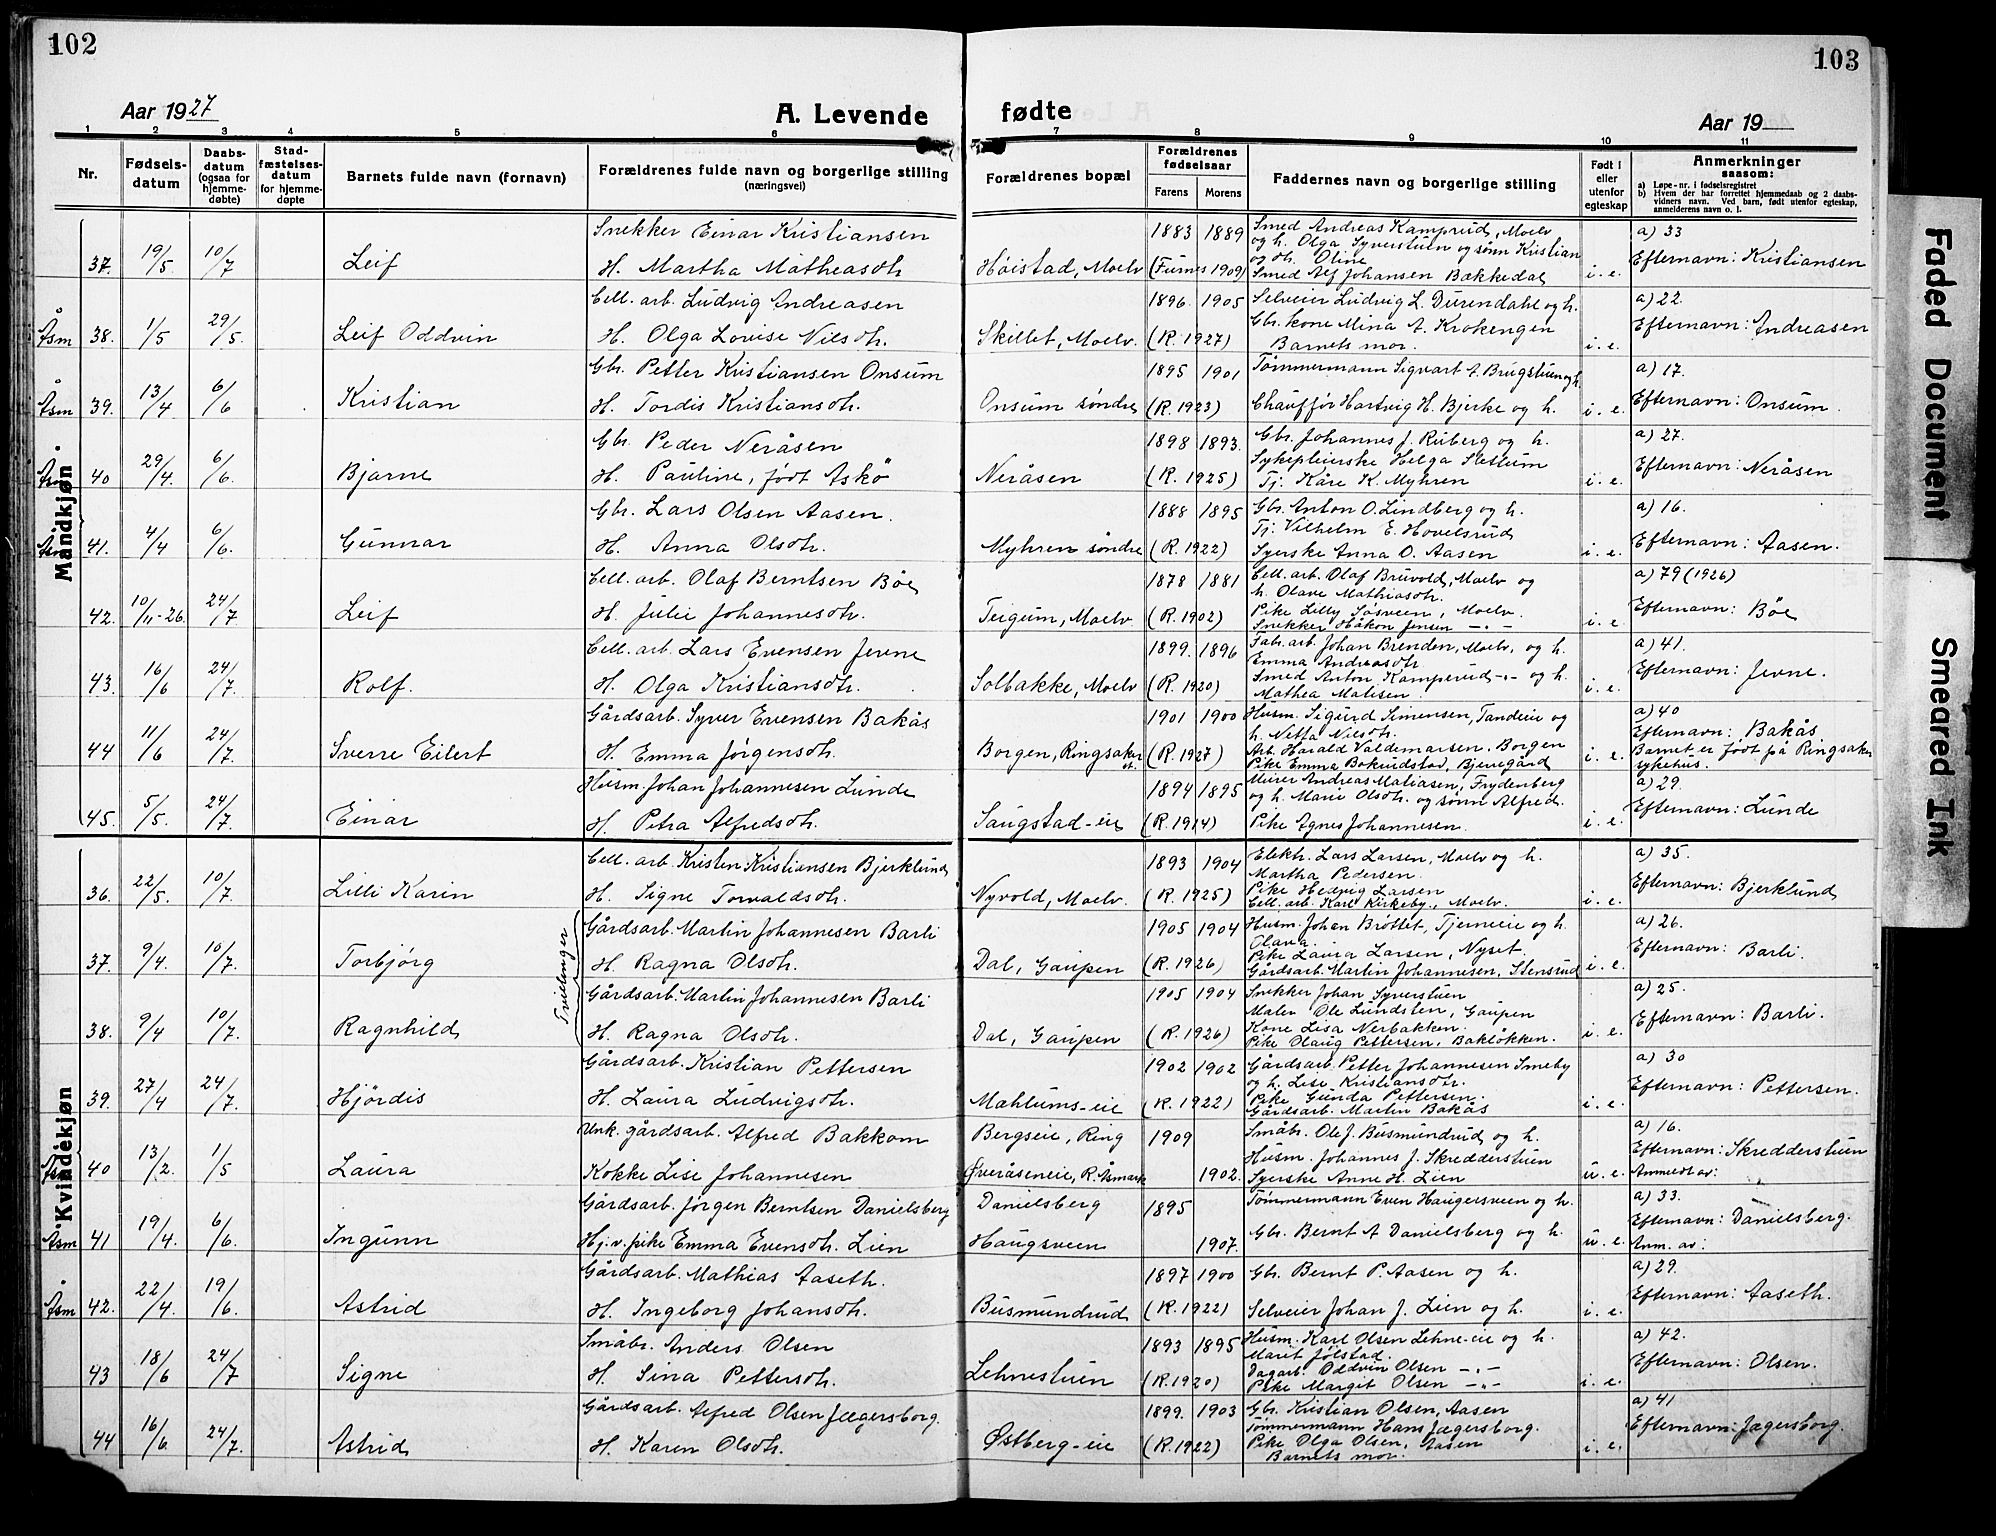 102
103
Aar 1927
A. Levende
fødte
Aar 19
1 2 3 4 5 6 7 8 9 10 11
Nr.
Fødsels-datum
Daabs-datum (ogsaa for hjemme-døbte)
Stad-fæstelses-datum for hjemme-døpte
Barnets fulde navn (fornavn)
Forældrenes fulde navn og borgerlige stilling (næringsvei)
Forældrenes bopæl
Forældrenes fødselsaar
Farens Morens
Faddernes navn og borgerlige stilling
Født i eller utenfor egteskap
Anmerkninger saasom:
a) Løpe-nr. i fødselsregistret
b) Hvem der har forrettet hjemmedaab og 2 daabs-vidners navn. Ved barn, født utenfor egteskap, anmelderens navn o. l.
Mandkjøn
37. 19/5 10/7 Leif
Snekker Einar Kristiansen
H. Martha Matheasdtr.
Høistad, Moelv
1883 1889
(Furnes 1909)
Smed Andreas Kamprud, Moelv
og h. Olga Syverstuen og sønn Kristian
og dtr. Oline
Smed Alf Johansen Bækkedal
i. e.
a) 33
Efternavn: Kristiansen
Åsm 38. 1/5 29/5. Leif Oddvin
Cell. arb. Ludvig Andreasen
H. Olga Lovise Nilsdtr.
Skillet, Moelv.
1896. 1905
(R. 1927)
Selveier Ludvig L. Durendahl og h.
Gbr. kone Mina A. Krokengen
Barnets mor.
i. e.
a) 22.
Efternavn: Andreasen
Åsm 39. 13/4 6/6 Kristian
Gbr. Petter Kristiansen Onsum
H. Tordis Kristiansdtr.
Onsum søndre
1895 1901
(R. 1923)
Tømmermann Sigvart A. Brugstuen og h.
Chauffør Hartvig H. Bjerke og h.
i. e.
a) 17.
Efternavn: Onsum.
Åsm 40 29/4. 6/6. Bjarne
Gbr. Peder Neråsen
H. Pauline, født Askø
Neråsen
1898 1893.
(R. 1925)
Gbr. Johannes J. Reiberg og h.
Sykepleierske Helga Slettum
Tj. Kåre K. Myhren
i. e.
a) 27.
Efternavn: Neråsen
Åsm 41. 4/4 6/6. Gunnar
Gbr. Lars Olsen Aasen.
H. Anna Olsdtr.
Myhren søndre
1888 1895
(R. 1922)
Gbr. Anton O. Lindberg og h.
Tj. Vilhelm E. Hovelsrud
Syerske Anna O. Aasen
i. e.
a) 16.
Efternavn: Aasen.
42. 10/11-26. 24/7 Leif
Cell. arb. Olaf Berntsen Bøe
H. Julie Johannesdtr.
Teigum, Moelv
1878 1881
(R. 1902)
Cell. arb. Olaf Bruvold, Moelv og
h. Olave Mathiasdtr.
Pike Lilly Søsveen, Moelv.
Snekker Håkon Jensen -"-
i. e.
a) 79 (1926)
Efternavn: Bøe
43. 16/6 24/7. Rolf.
Cell. arb. Lars Evensen Jevne
H. Olga Kristiansdtr.
Solbakke, Moelv
1899. 1896
(R. 1920)
Fabr. arb. Johan Brenden, Moelv, og h.
Emma Andreasdtr
Smed Anton Kamperud -"- og h.
Mathea Matisen.
i. e.
a) 41.
Efternavn: Jevne.
44 11/6 24/7. Sverre Eilert
Gårdsarb. Syver Evensen Bakås
H. Emma Jørgensdtr.
Borgen, Ringsaker
1901 1900
(R. 1927)
Husm. Sigurd Simensen, Tandeie og
h. Netta Nilsdtr.
Arb. Harald Valdemarsen, Borgen
Pike Emma Bakrudstad, Bjerregård
i. e.
a) 40
Efternavn: Bakås
Barnet er født på Ringsaker
sykehus.
45. 5/5. 24/7. Einar
Husm. Johan Johannesen Lunde
H. Petra Alfredsdtr.
Saugstad-eie
1894 1895
(R. 1914)
Murer Andreas Matiasen, Frydenberg
og h. Marie Olsdtr. og sønn Alfred.
Pike Agnes Johannesen.
i. e.
a) 29.
Efternavn: Lunde
Kvindekjøn
36. 22/5. 10/7. Lilli Karin
Cell. arb. Kristen Kristiansen Bjerklund
H. Signe Torvaldsdtr.
Nyvold, Moelv.
1893 1904
(R. 1925)
Elektr. Lars Larsen, Moelv og h.
Martha Pedersen.
Pike Hedvig Larsen
Cell. arb. Karl Kirkeby, Moelv.
i. e.
a) 35.
Efternavn: Bjerklund
Tvillinger
37. 9/4. 10/7. Torbjørg
Gårdsarb. Martin Johannesen Barli
H. Ragna Olsdtr.
Dal, Gaupen
1905 1904
(R. 1926)
Husm. Johan Brøttet, Tjerneie og h.
Olava.
Pike Laura Larsen, Nyset.
Gårdsarb. Martin Johannesen, Stensrud
i. e.
a) 26.
Efternavn: Barli.
38. 9/4 10/7. Ragnhild
Gårdsarb. Martin Johannesen Barli
H. Ragna Olsdtr.
Dal, Gaupen
1905 1904
(R. 1926)
Snekker Johan Syverstuen
Maler Ole Lundsten, Gaupen
Kone Lisa Nerbakken.
Pike Olaug Pettersen, Bakløkken.
i. e.
a) 25.
Efternavn: Barli.
39. 27/4 24/7. Hjördis
Gårdsarb. Kristian Pettersen
H. Laura Ludvigsdtr.
Mæhlums-eie
1902 1902
(R. 1922)
Gårdsarb. Petter Johannesen Smeby
og h. Lise Kristiansdtr.
Pike Gunda Pettersen.
Gårdsarb. Martin Bakås
i. e.
a) 30
Efternavn: Pettersen.
Åsm 40 13/2. 1/5 Laura
Unk. gårdsarb. Alfred Bakkom
Kokke Lise Johannesen
Bergseie, Ring
Øveråseneie, R. Åsmark
1909
1902.
Småbr. Ole J. Busmundrud og h.
Husm. Johannes J. Skredderstuen
Syerske Anne H. Lien
u. e.
a) 16.
Efternavn: Skredderstuen
Anmeldt av:
Åsm 41 19/4. 6/6. Ingunn
Gårdsarb. Jørgen Berntsen Danielsberg
Hj. v. pike Emma Evensdtr. Lien
Danielsberg
Haugsveen
1895
1907.
Tømmermann Even Haugersveen og h.
Gbr. Bernt A Danielsberg og h.
u. e.
a) 33.
Efternavn: Danielsberg.
Anm. av:
Åsm 42. 22/4. 19/6. Astrid
Gårdsarb. Mathias Aaseth.
H. Ingeborg Johansdtr.
Busmundrud
1897 1900
(R. 1922)
Gbr. Bernt P. Aasen og h.
Selveier Johan J. Lien og h.
i. e.
a) 29.
Efternavn: Aaseth.
43 18/6 24/7 Signe
Småbr. Anders Olsen
H. Sina Pettersdtr.
Lehnestuen
1893 1895
(R. 1920)
Husm. Karl Olsen Lehne-eie og h.
Marit Jølstad.
Dagarb. Oddvin Olsen -"-
Pike Margit Olsen -"-
i. e.
a) 42.
Efternavn: Olsen.
44 16/6. 24/7. Astrid
Gårdsarb. Alfred Olsen Jægersborg.
H. Karen Olsdtr.
Østberg-eie
1899. 1903
(R. 1922)
Gbr. Kristian Olsen, Aasen
Tømmermann Hans Jægersborg.
Pike Olga Olsen, Aasen
Barnets mor.
i. e.
a) 41
Efternavn: Jægersborg.
Faded Document
Smeared Ink